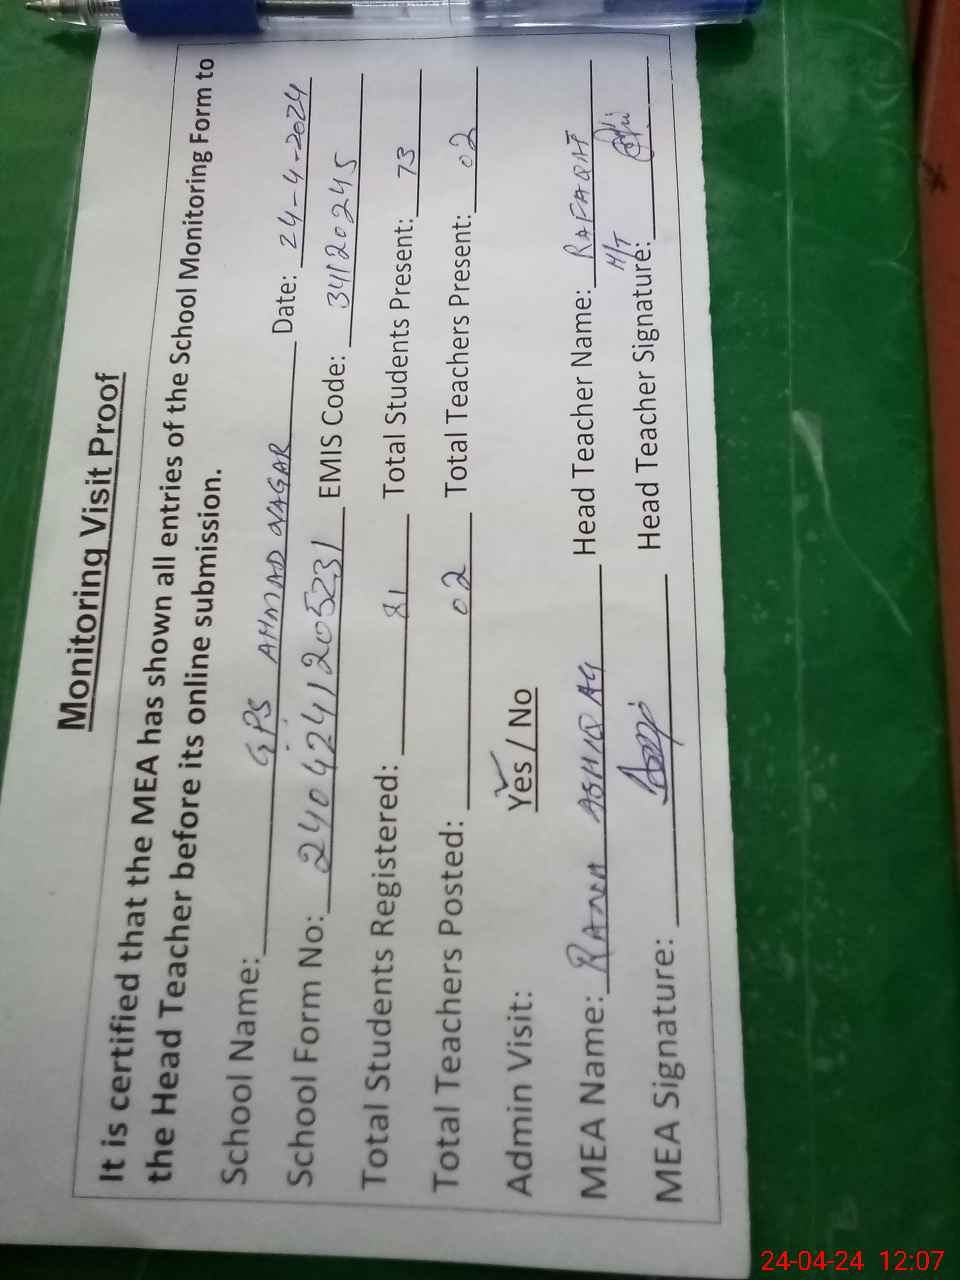 Monitoring Visit Proof
It is certified that the MEA has shown all entries of the School Monitoring Form to
the Head Teacher before its online submission.
School Name: GPS AHMAD NAGAR Date: 24-4-2024
School Form No: 2404241205231 EMIS Code: 34120245
Total Students Registered: 81 Total Students Present: 73
Total Teachers Posted: 02 Total Teachers Present: 02
Admin Visit: Yes / No
MEA Name: RANA ASHIQ ALI Head Teacher Name: RAFAQAT
H/T
MEA Signature: Head Teacher Signature:
24-04-24 12:07